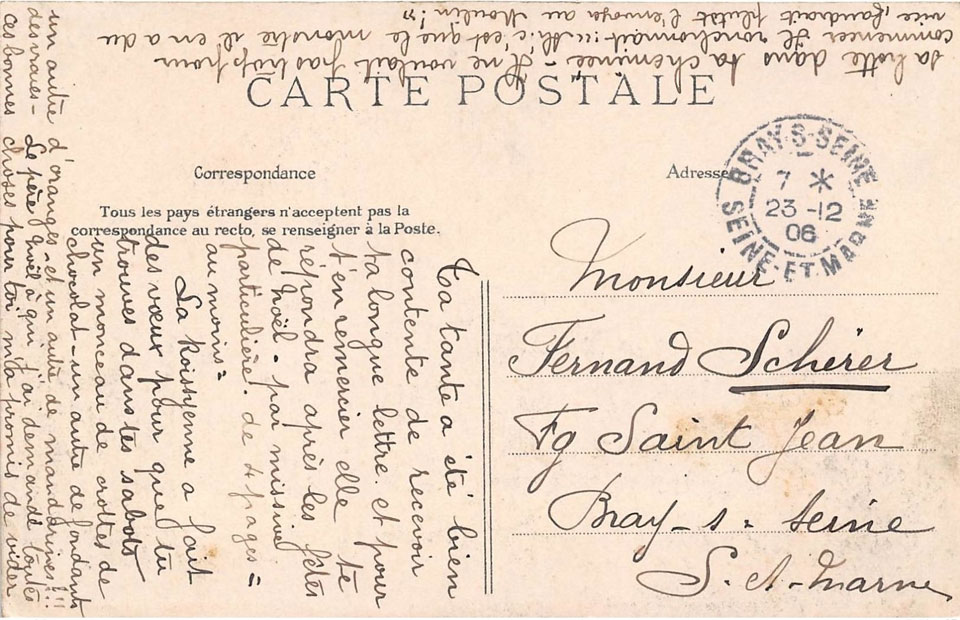 CARTE POSTALE
Correspondance
Adresse
Tous les pays étrangers n'acceptent pas la
correspondance au recto, se renseigner à la Poste.
BRAY-S-SEINE
7 *
23-12
06
SEINE-ET-MARNE
Monsieur
Fernand Schérer
Fg Saint Jean
Bray-s=Seine
S.-et-Marne
Ta tante a été bien
contente de recevoir
ta longue lettre. et pour
t'en remercier elle te
répondra après les fêtes
de Noël - par missive
particulière! de 4 pages =
au moins =
La Noisyenne a fait
des vœux pour que tu
trouves dans tes sabots
un monceau de crottes de
chocolat - un autre de fondants
un autre d'oranges - et un autre de mandarines!!!
des vraies - Le père Noël à qui j'ai demandé toutes
ces bonnes choses pour toi m'a promis de vider
sa hotte dans ta cheminée - Il ne voulait pas trop pour
commencer Il ronchonnait!!! Ah! c'est que le monstre il en a du
vice, faudrait plutôt l'envoyer au Moulin!"